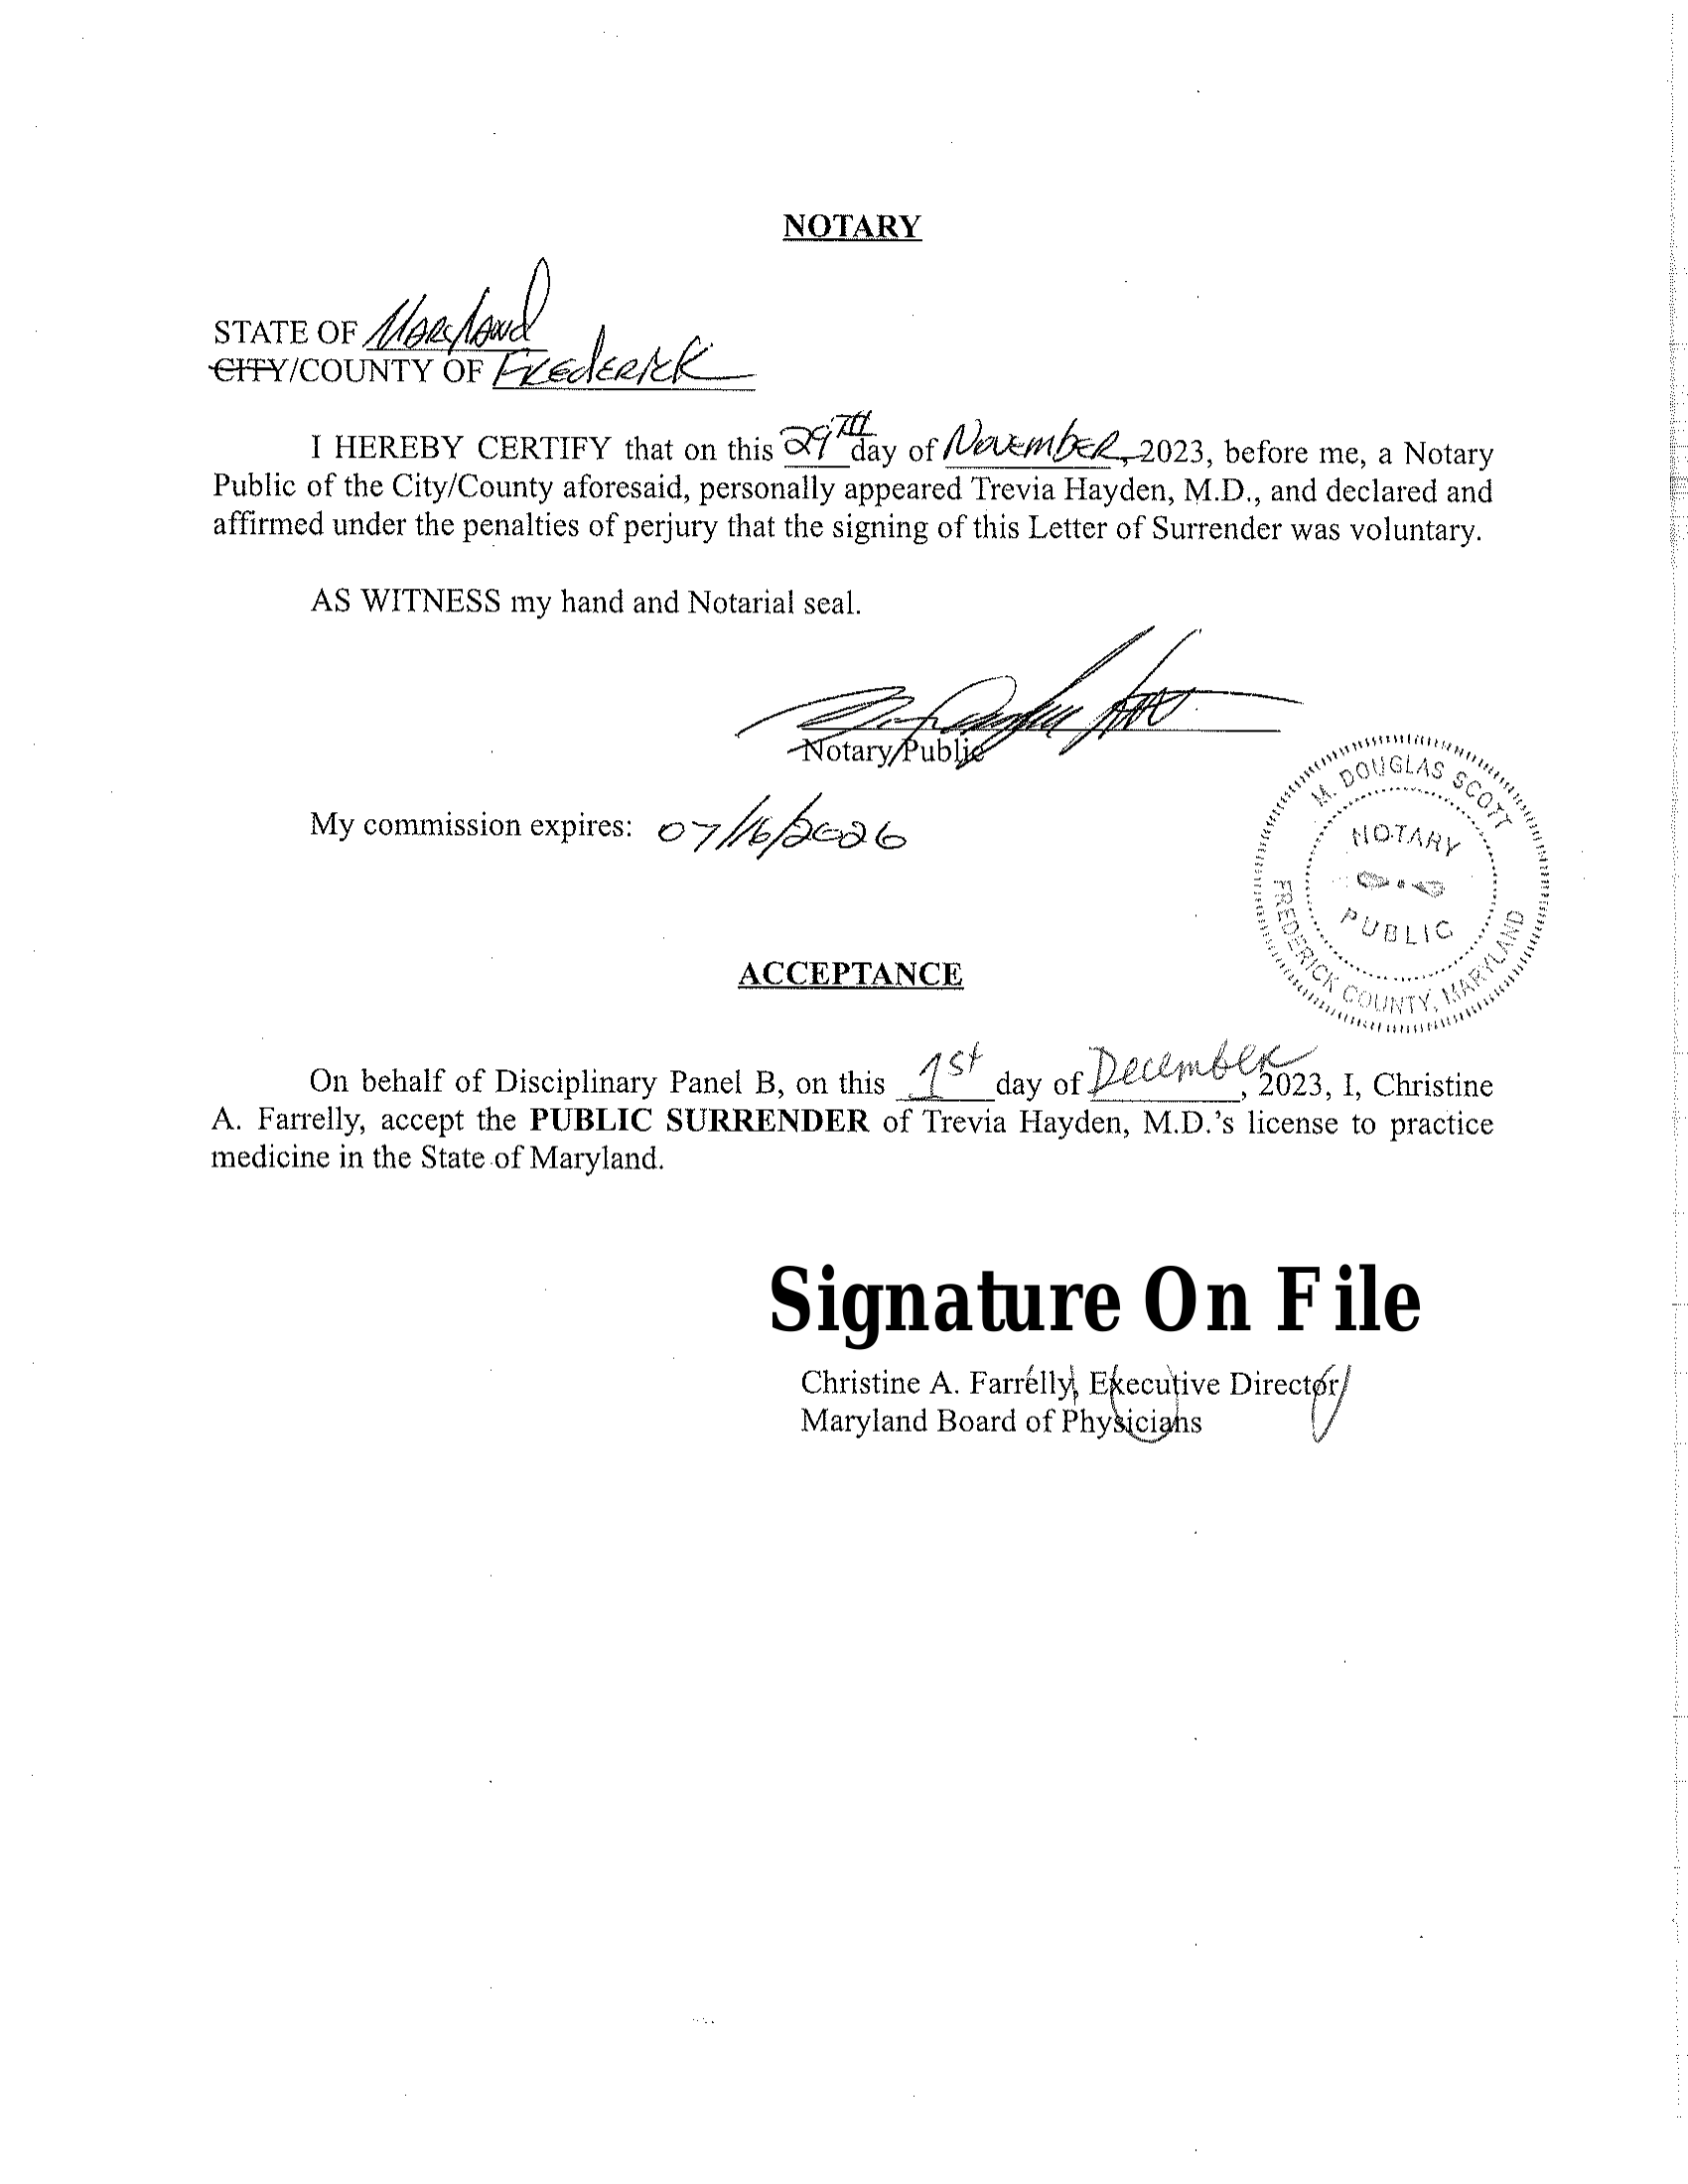 NOTARY
STATE OF Maryland
CITY/COUNTY OF Frederick
I HEREBY CERTIFY that on this 29TH day of November, 2023, before me, a Notary
Public of the City/County aforesaid, personally appeared Trevia Hayden, M.D., and declared and
affirmed under the penalties of perjury that the signing of this Letter of Surrender was voluntary.
AS WITNESS my hand and Notarial seal.
Notary Public
My commission expires: 07/16/2026
M. DOUGLAS SCOTT
NOTARY
PUBLIC
FREDERICK COUNTY, MARYLAND
ACCEPTANCE
On behalf of Disciplinary Panel B, on this 1st day of December, 2023, I, Christine
A. Farrelly, accept the PUBLIC SURRENDER of Trevia Hayden, M.D.'s license to practice
medicine in the State of Maryland.
Signature On File
Christine A. Farrelly, Executive Director
Maryland Board of Physicians